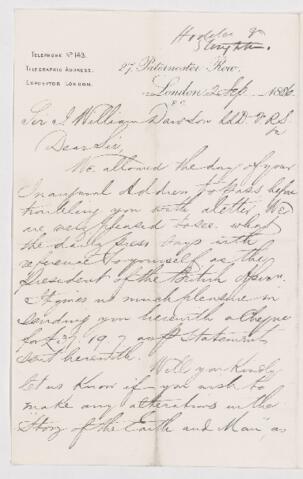 Hodder &
Stoughton.
TELEPHONE No 143.
TELEGRAPHIC ADDRESS.
EXPOSITOR LONDON.
27, Paternoster Row,
London 2 Sep 1886
Sir J. William Dawson LLD. F.R.S.
Dear Sir,
We allowed the day of your
Inaugural Address to pass before
troubling you with a letter. We
are very pleased to see what
the daily press says with
reference to yourself as the
President of the British Assn.
It gives us much pleasure in
sending you herewith a cheque
for £37. 19. 7 as Statement
sent herewith.
Will you kindly
let us know if you wish to
make any alterations in the
"Story of the Earth and Man," as